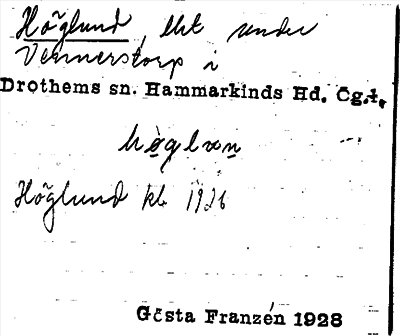 Höglund, lht under
Vennerstorp i
Drothems sn. Hammarkinds Hd. Ög.
höglun
Höglund kb. 1926
Gösta Franzén 1928